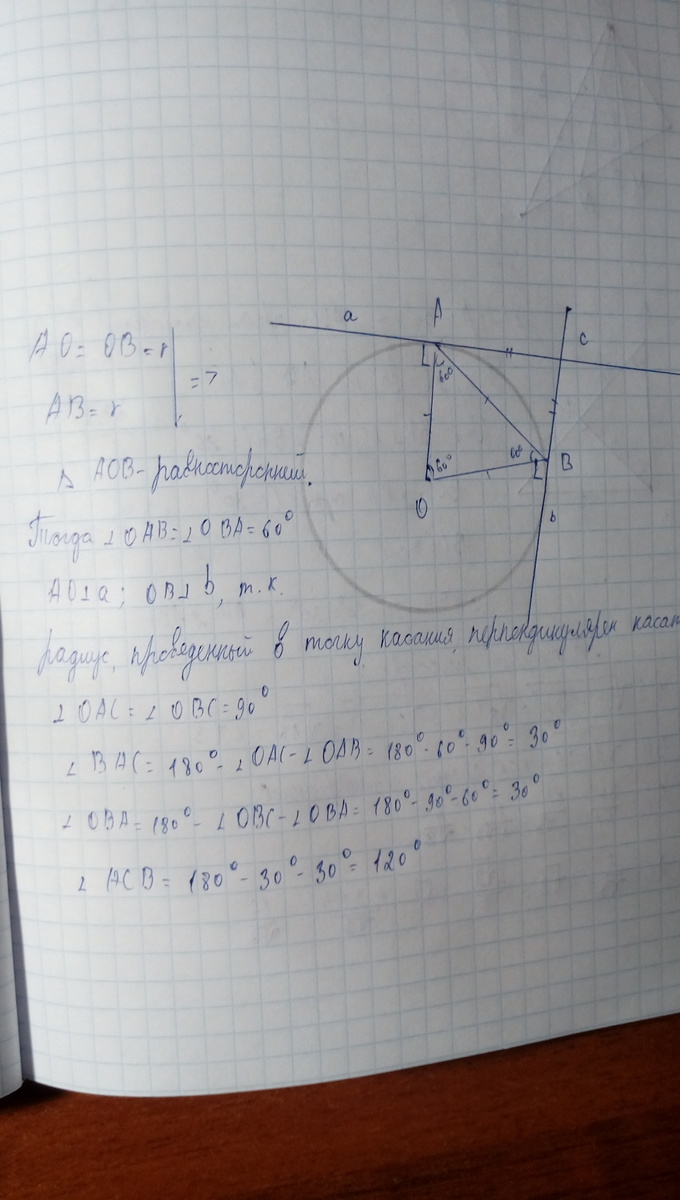 a
A
c
AO = OB = r
=>
AB = r
60°
60°
60°
B
O
b
Δ AOB - равносторонний.
Тогда ∠OAB = ∠OBA = 60°
AO⊥a; OB⊥b, т.к.
радиус, проведенный в точку касания, перпендикулярен касат
∠OAC = ∠OBC = 90°
∠BAC = 180° - ∠OAC - ∠OAB = 180° - 60° - 90° = 30°
∠OBA = 180° - ∠OBC - ∠OBA = 180° - 90° - 60° = 30°
∠ACB = 180° - 30° - 30° = 120°